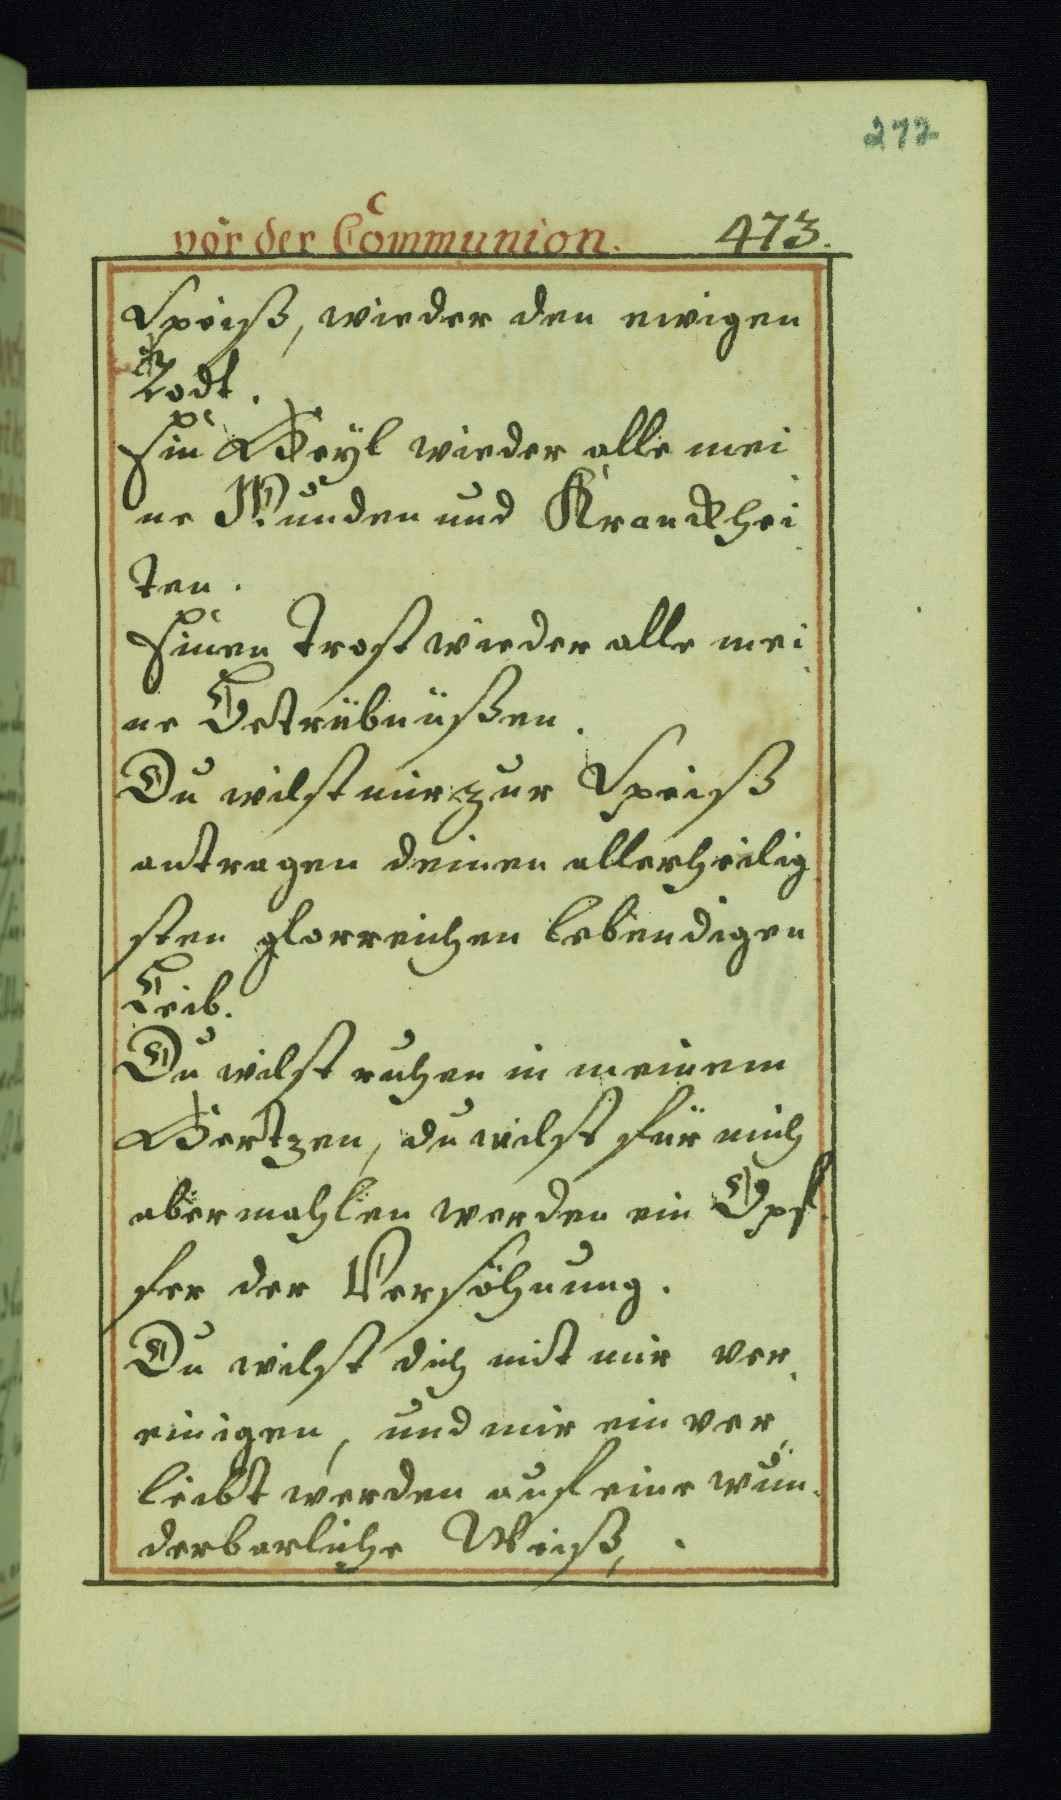 272
vor der Communion. 473.
Speiß, wieder den ewigen
Todt.
Ein Heyl wieder alle mei
ne Wunden und Kranckhei
ten.
Einen Trost wieder alle mei
ne Betrübnüßen.
Du wilst mir zur Speiß
antragen deinen allerheilig
sten glorreichen lebendigen
Leib.
Du wilst ruhen in meinem
Hertzen, du wilst für mich
abermahlen werden ein Opf
fer der Versöhnung.
Du wilst dich mit mir ver
einigen, und mir ein ver
leibt werden auf eine wun
derbarliche Weiß,